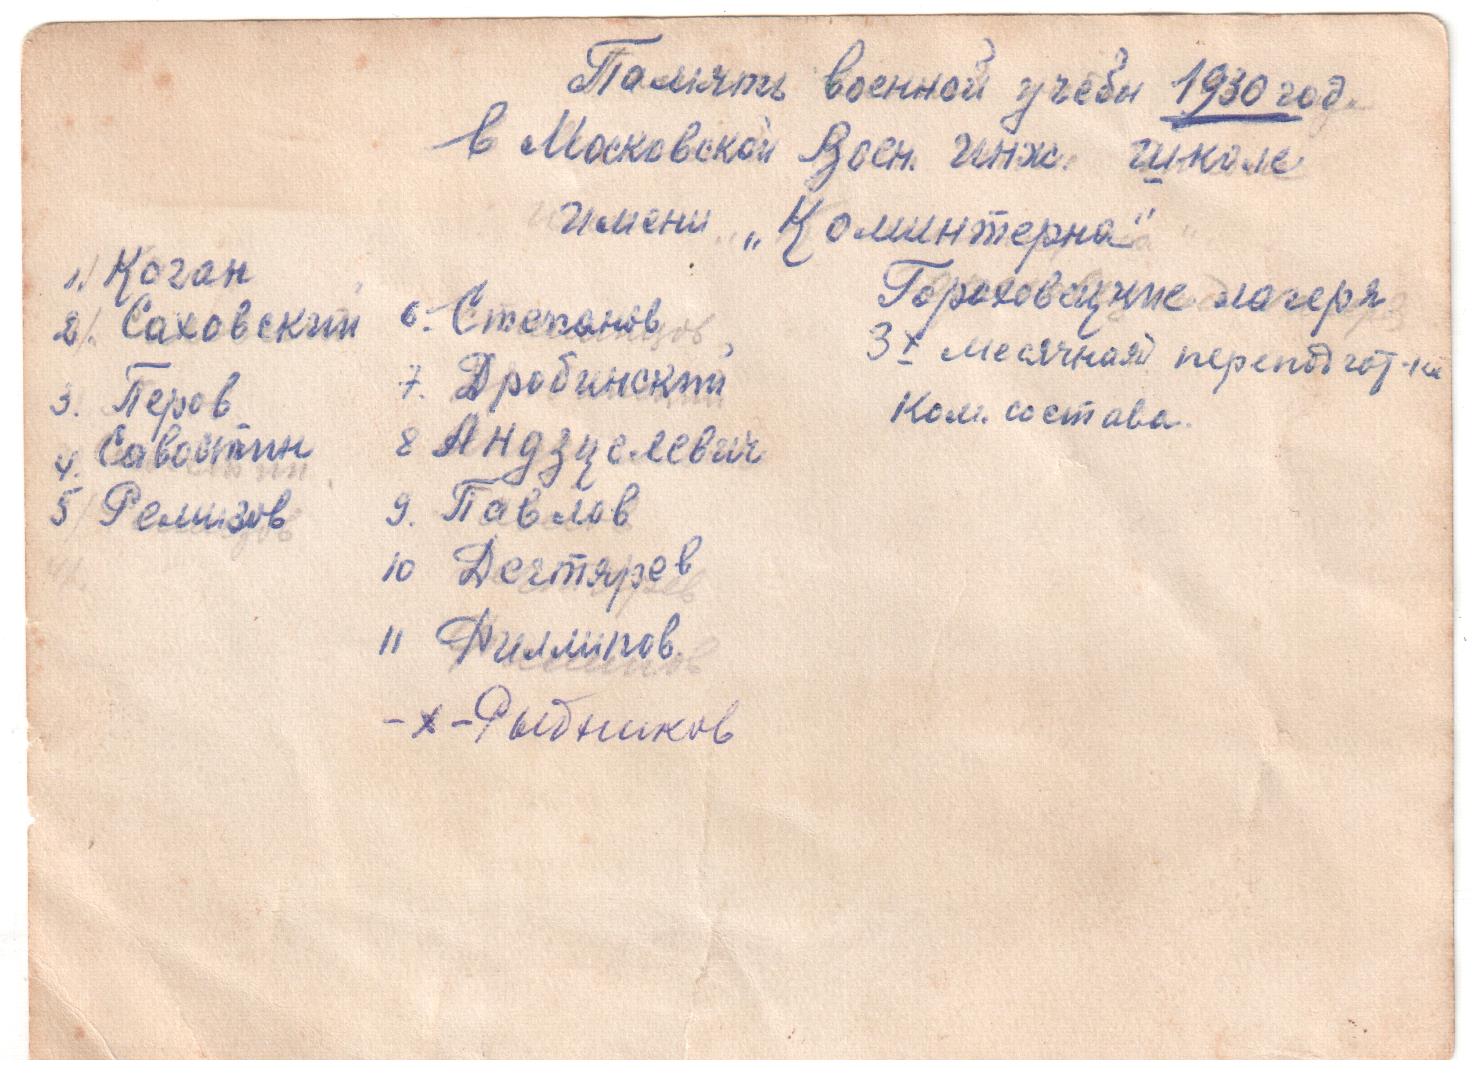 Память военной учёбы 1930 год.
в Московской Воен. Инж. школе
имени „Коминтерна"
1/ Коган
2/. Саховский
3. Перов
4. Савостин
5/ Ремизов
6. Степанов
7. Дробинский
8 Андзуелевич
9. Павлов
10 Дегтярев
11 Филлипов
-х- Рыбников
Гороховецкие лагеря
3х месячной переподгот-ки
Ком. состава.